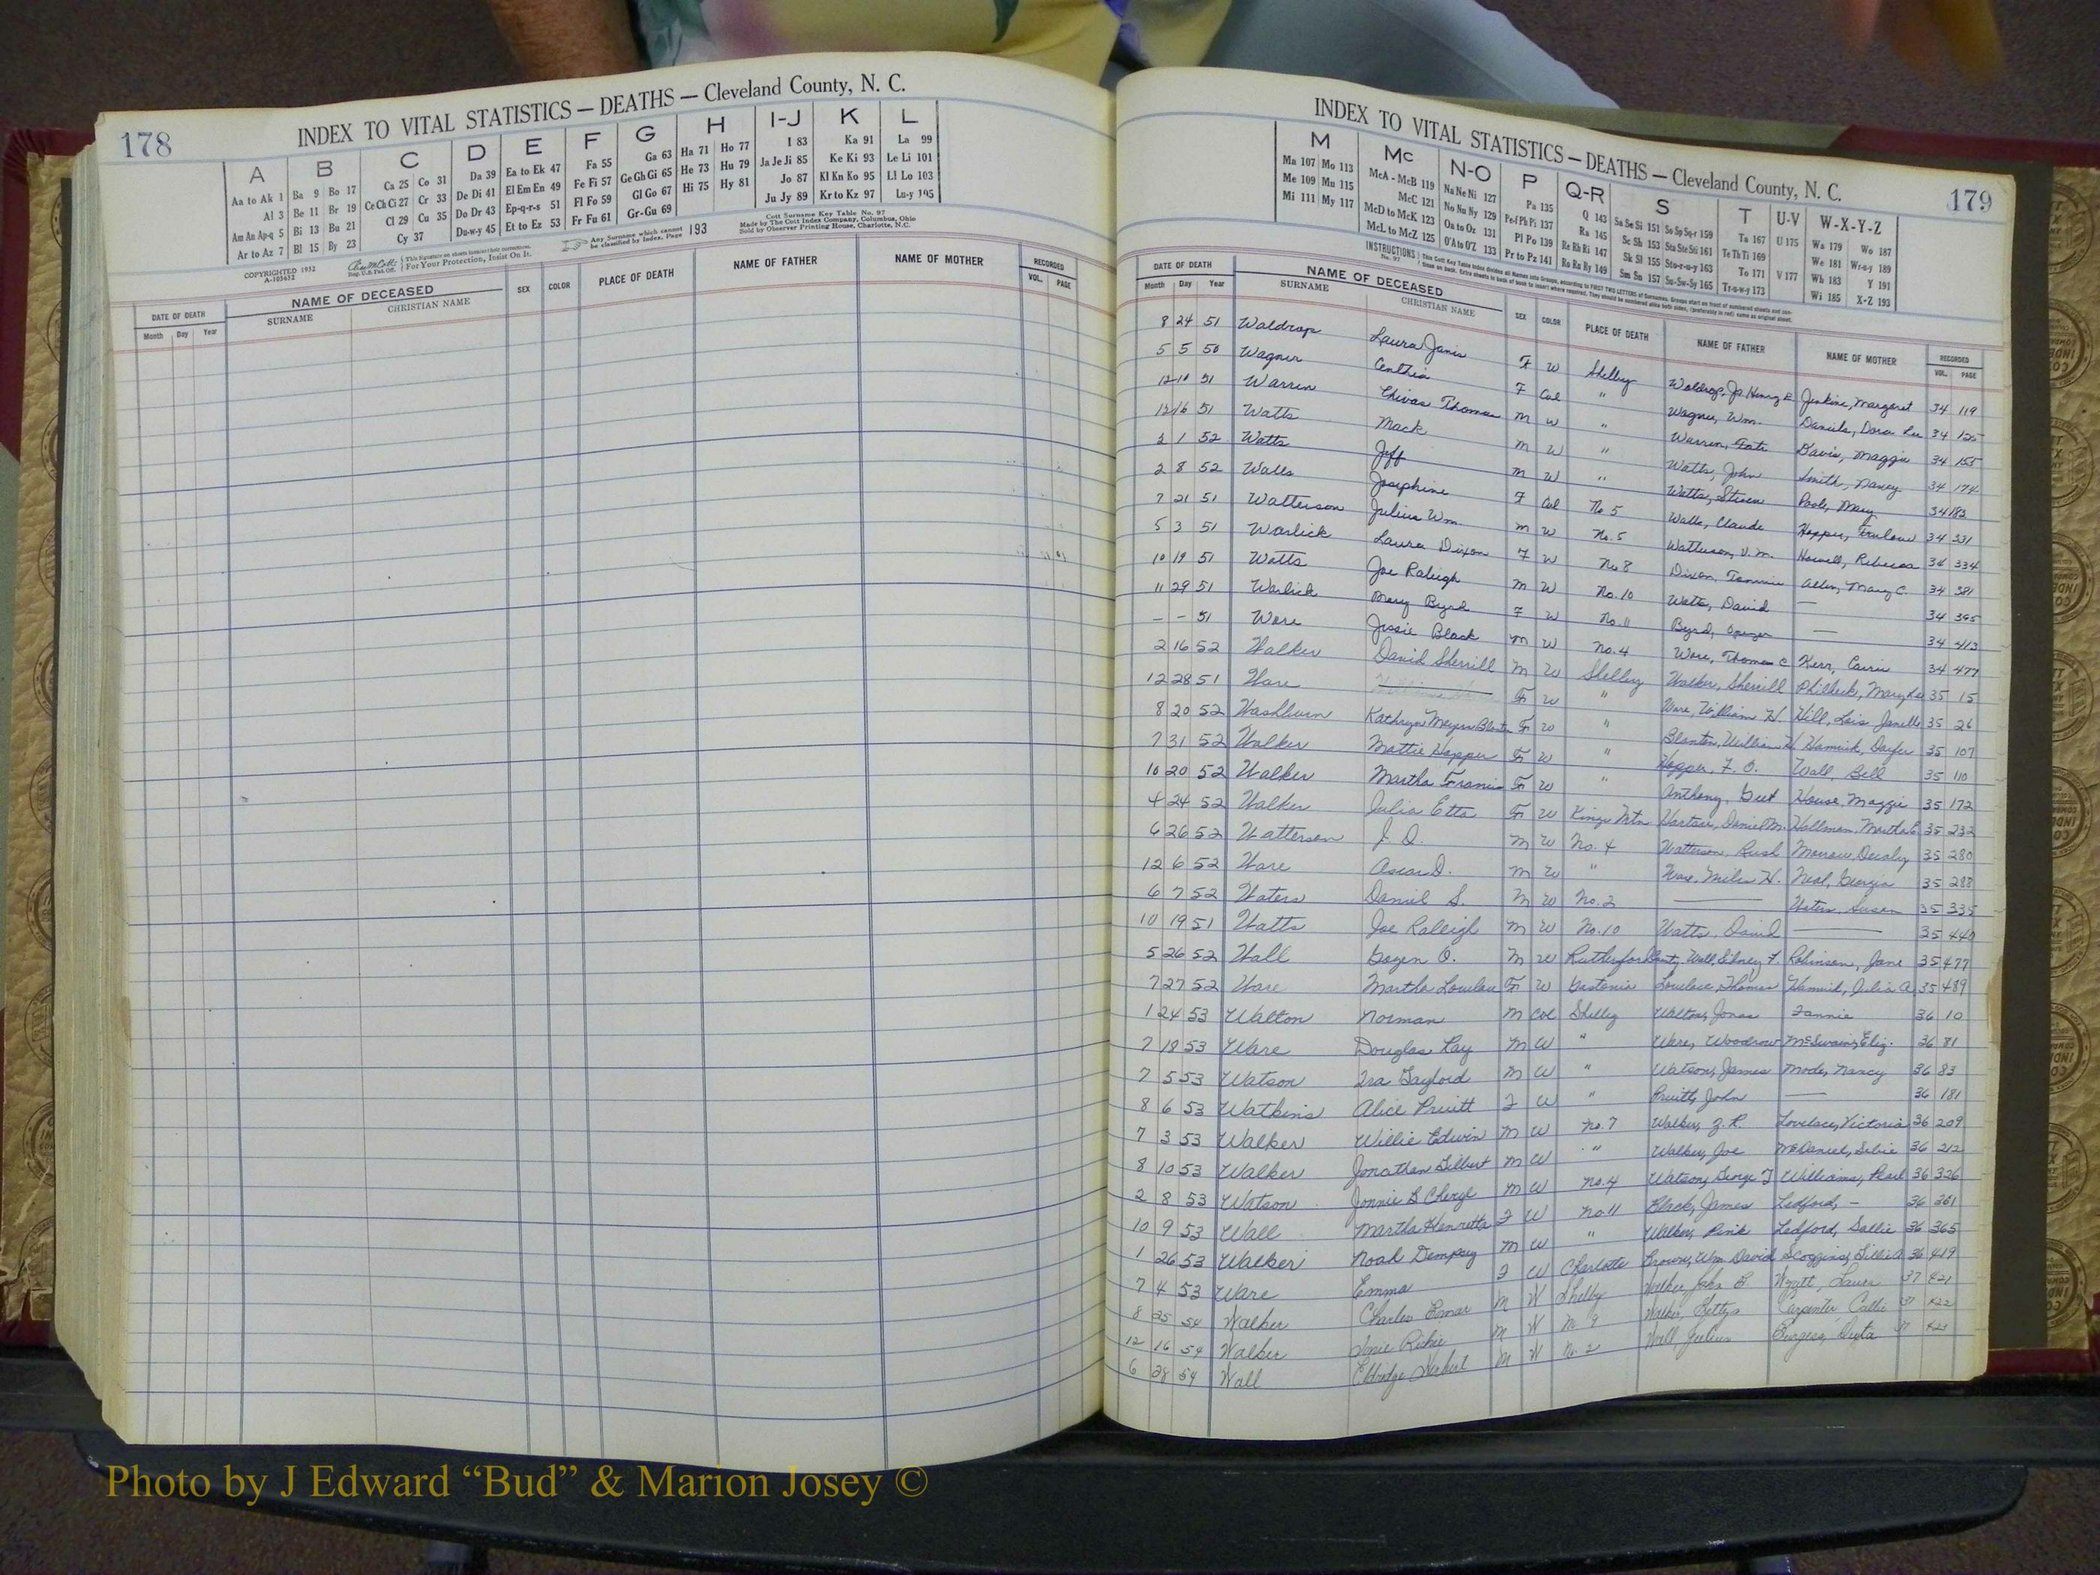 178
INDEX TO VITAL STATISTICS — DEATHS — Cleveland County, N. C.
A B C D E F G H I-J K L
Aa to Ak 1 Ba 9 Bo 17 Ca 25 Co 31 Da 39 Ea to Ek 47 Fa 55 Ga 63 Ha 71 Ho 77 I 83 Ka 91 La 99
Al 3 Be 11 Br 19 Ce Ch Ci 27 Cr 33 De Di 41 El Em En 49 Fe Fi 57 Ge Gh Gi 65 He 73 Hu 79 Ja Je Ji 85 Ke Ki 93 Le Li 101
Am An Ap-q 5 Bi 13 Bu 21 Cl 29 Cu 35 Do Dr 43 Ep-q-r-s 51 Fl Fo 59 Gl Go 67 Hi 75 Hy 81 Jo 87 Kl Kn Ko 95 Ll Lo 103
Ar to Az 7 Bl 15 By 23 Cy 37 Du-w-y 45 Et to Ez 53 Fr Fu 61 Gr-Gu 69 Ju Jy 89 Kr to Kz 97 Lu-y 105
COPYRIGHTED 1932
A-105632
For Your Protection, Insist On It.
Any Surname which cannot be classified by Index, Page 193
Cott Surname Key Table No. 97
Made by The Cott Index Company, Columbus, Ohio
Sold by Observer Printing House, Charlotte, N.C.
DATE OF DEATH NAME OF DECEASED SEX COLOR PLACE OF DEATH NAME OF FATHER NAME OF MOTHER RECORDED
Month Day Year SURNAME CHRISTIAN NAME VOL. PAGE
INDEX TO VITAL STATISTICS — DEATHS — Cleveland County, N. C.
179
M Mc N-O P Q-R S T U-V W-X-Y-Z
Ma 107 Mo 113 McA - McB 119 Na Ne Ni 127 Pa 135 Q 143 Sa Se Si 151 So Sp Sq-r 159 Ta 167 U 175 Wa 179 Wo 187
Me 109 Mu 115 McC 121 No Nu Ny 129 Pe-f Ph Pi 137 Ra 145 Sc Sh 153 Sta Ste Sti 161 Te Th Ti 169 We 181 Wr-u-y 189
Mi 111 My 117 McD to McK 123 Oa to Oz 131 Pl Po 139 Re Rh Ri 147 Sk Sl 155 Sto-r-u-y 163 To 171 V 177 Wh 183 Y 191
McL to McZ 125 O'A to O'Z 133 Pr to Pz 141 Ro Ru Ry 149 Sm Sn 157 Su-Sw-Sy 165 Tr-u-w-y 173 Wi 185 X-Z 193
INSTRUCTIONS No. 97
DATE OF DEATH NAME OF DECEASED SEX COLOR PLACE OF DEATH NAME OF FATHER NAME OF MOTHER RECORDED
Month Day Year SURNAME CHRISTIAN NAME VOL. PAGE
8 24 51 Waldrop Laura Janis F W Shelby Waldrop, Jr. Henry Jenkins, Margaret 34 119
5 5 50 Wagner Centhia F Col " Wagner, Wm. Daniels, Dora Lee 34 125
12 10 51 Warren Chivas Thomas M W " Warren, Davis, Maggie 34 155
12 16 51 Watts Mack M W " Watts, John Smith, Nancy 34 174
1 52 Watts Jeff M W " Watts, Steven Pool, Mary 34 183
2 8 52 Walls Josephine F Col No 5 Walls, Claude Hopper, 34 331
7 21 51 Watterson Julius Wm. M W No. 5 Watterson, V. M. Howell, Rebecca 34 334
5 3 51 Warlick Laura Dixon F W No 8 Dixon, Tommie Allen, Mary C. 34 381
10 19 51 Watts Joe Raleigh M W No. 10 Watts, David — 34 395
11 29 51 Warlick Mary Byrd F W No. 11 Byrd, — 34 413
– – 51 Ware Jessie Black M W No. 4 Ware, Thomas C Kerr, Carrie 34 477
2 16 52 Walker David Sherrill M W Shelby Walker, Sherrill Philbeck, Mary Lee 35 15
12 28 51 Ware F W " Ware, William H. Hill, Lois Janelle 35 26
8 20 52 Washburn Kathryn Meyers Blanton F W " Blanton, William H. Hamrick, 35 107
7 31 52 Walker Mattie Hopper F W " Hopper, F. O. Wall, Bell 35 110
10 20 52 Walker Martha Francis F W " Anthony, House, Maggie 35 172
4 24 52 Walker Julia Etta F W Kings Mtn Hartsoe, Daniel M. Hallman, Martha E. 35 232
6 26 52 Watterson J. D. M W No. 4 Watterson, Rush Morrow, 35 280
12 6 52 Ware Oscar D. M W " Ware, Miles H. Neal, Georgia 35 288
6 7 52 Waters Daniel S. M W No. 2 — Waters, Susan 35 335
10 19 51 Watts Joe Raleigh M W No. 10 Watts, David — 35 440
5 26 52 Wall O. M W Rutherford County Wall, Sidney F. Robinson, Jane 35 477
7 27 52 Ware Martha Lovelace F W Gastonia Lovelace, Thomas Hamrick, Julia A. 35 489
1 24 53 Walton Norman M Col Shelby Walton, Jonas Fannie 36 10
7 18 53 Ware Douglas Ray M W " Ware, Woodrow McSwain, Eliz. 36 81
7 5 53 Watson Ira Gaylord M W " Watson, James Mode, Nancy 36 83
8 6 53 Watkins Alice Pruitt F W " Pruitt, John — 36 181
7 3 53 Walker Willie Edwin M W No. 7 Walker, Z. R. Lovelace, Victoria 36 209
8 10 53 Walker Jonathan Gilbert M W " Walker, Joe McDaniel, 36 212
2 8 53 Watson Jonnie B Cheryl M W No. 4 Watson, George T Williams, Pearl 36 326
10 9 53 Wall Martha Henretta F W No. 11 Black, James Ledford, – 36 261
1 26 53 Walker Noah Dempsy M W " Walker, Pink Ledford, Sallie 36 365
7 4 53 Ware Emma F W Charlotte Brown, Wm. David Scoggins, Lillie A 36 419
8 25 54 Walker Charles M W Shelby Walker, John B Wyatt, Laura 37 421
12 16 54 Walker M W No 9 Walker, Carpenter, Callie 37 422
6 28 54 Wall Eldridge M W No. 2 Wall, Julius Burgess, 37
Photo by J Edward “Bud” & Marion Josey ©